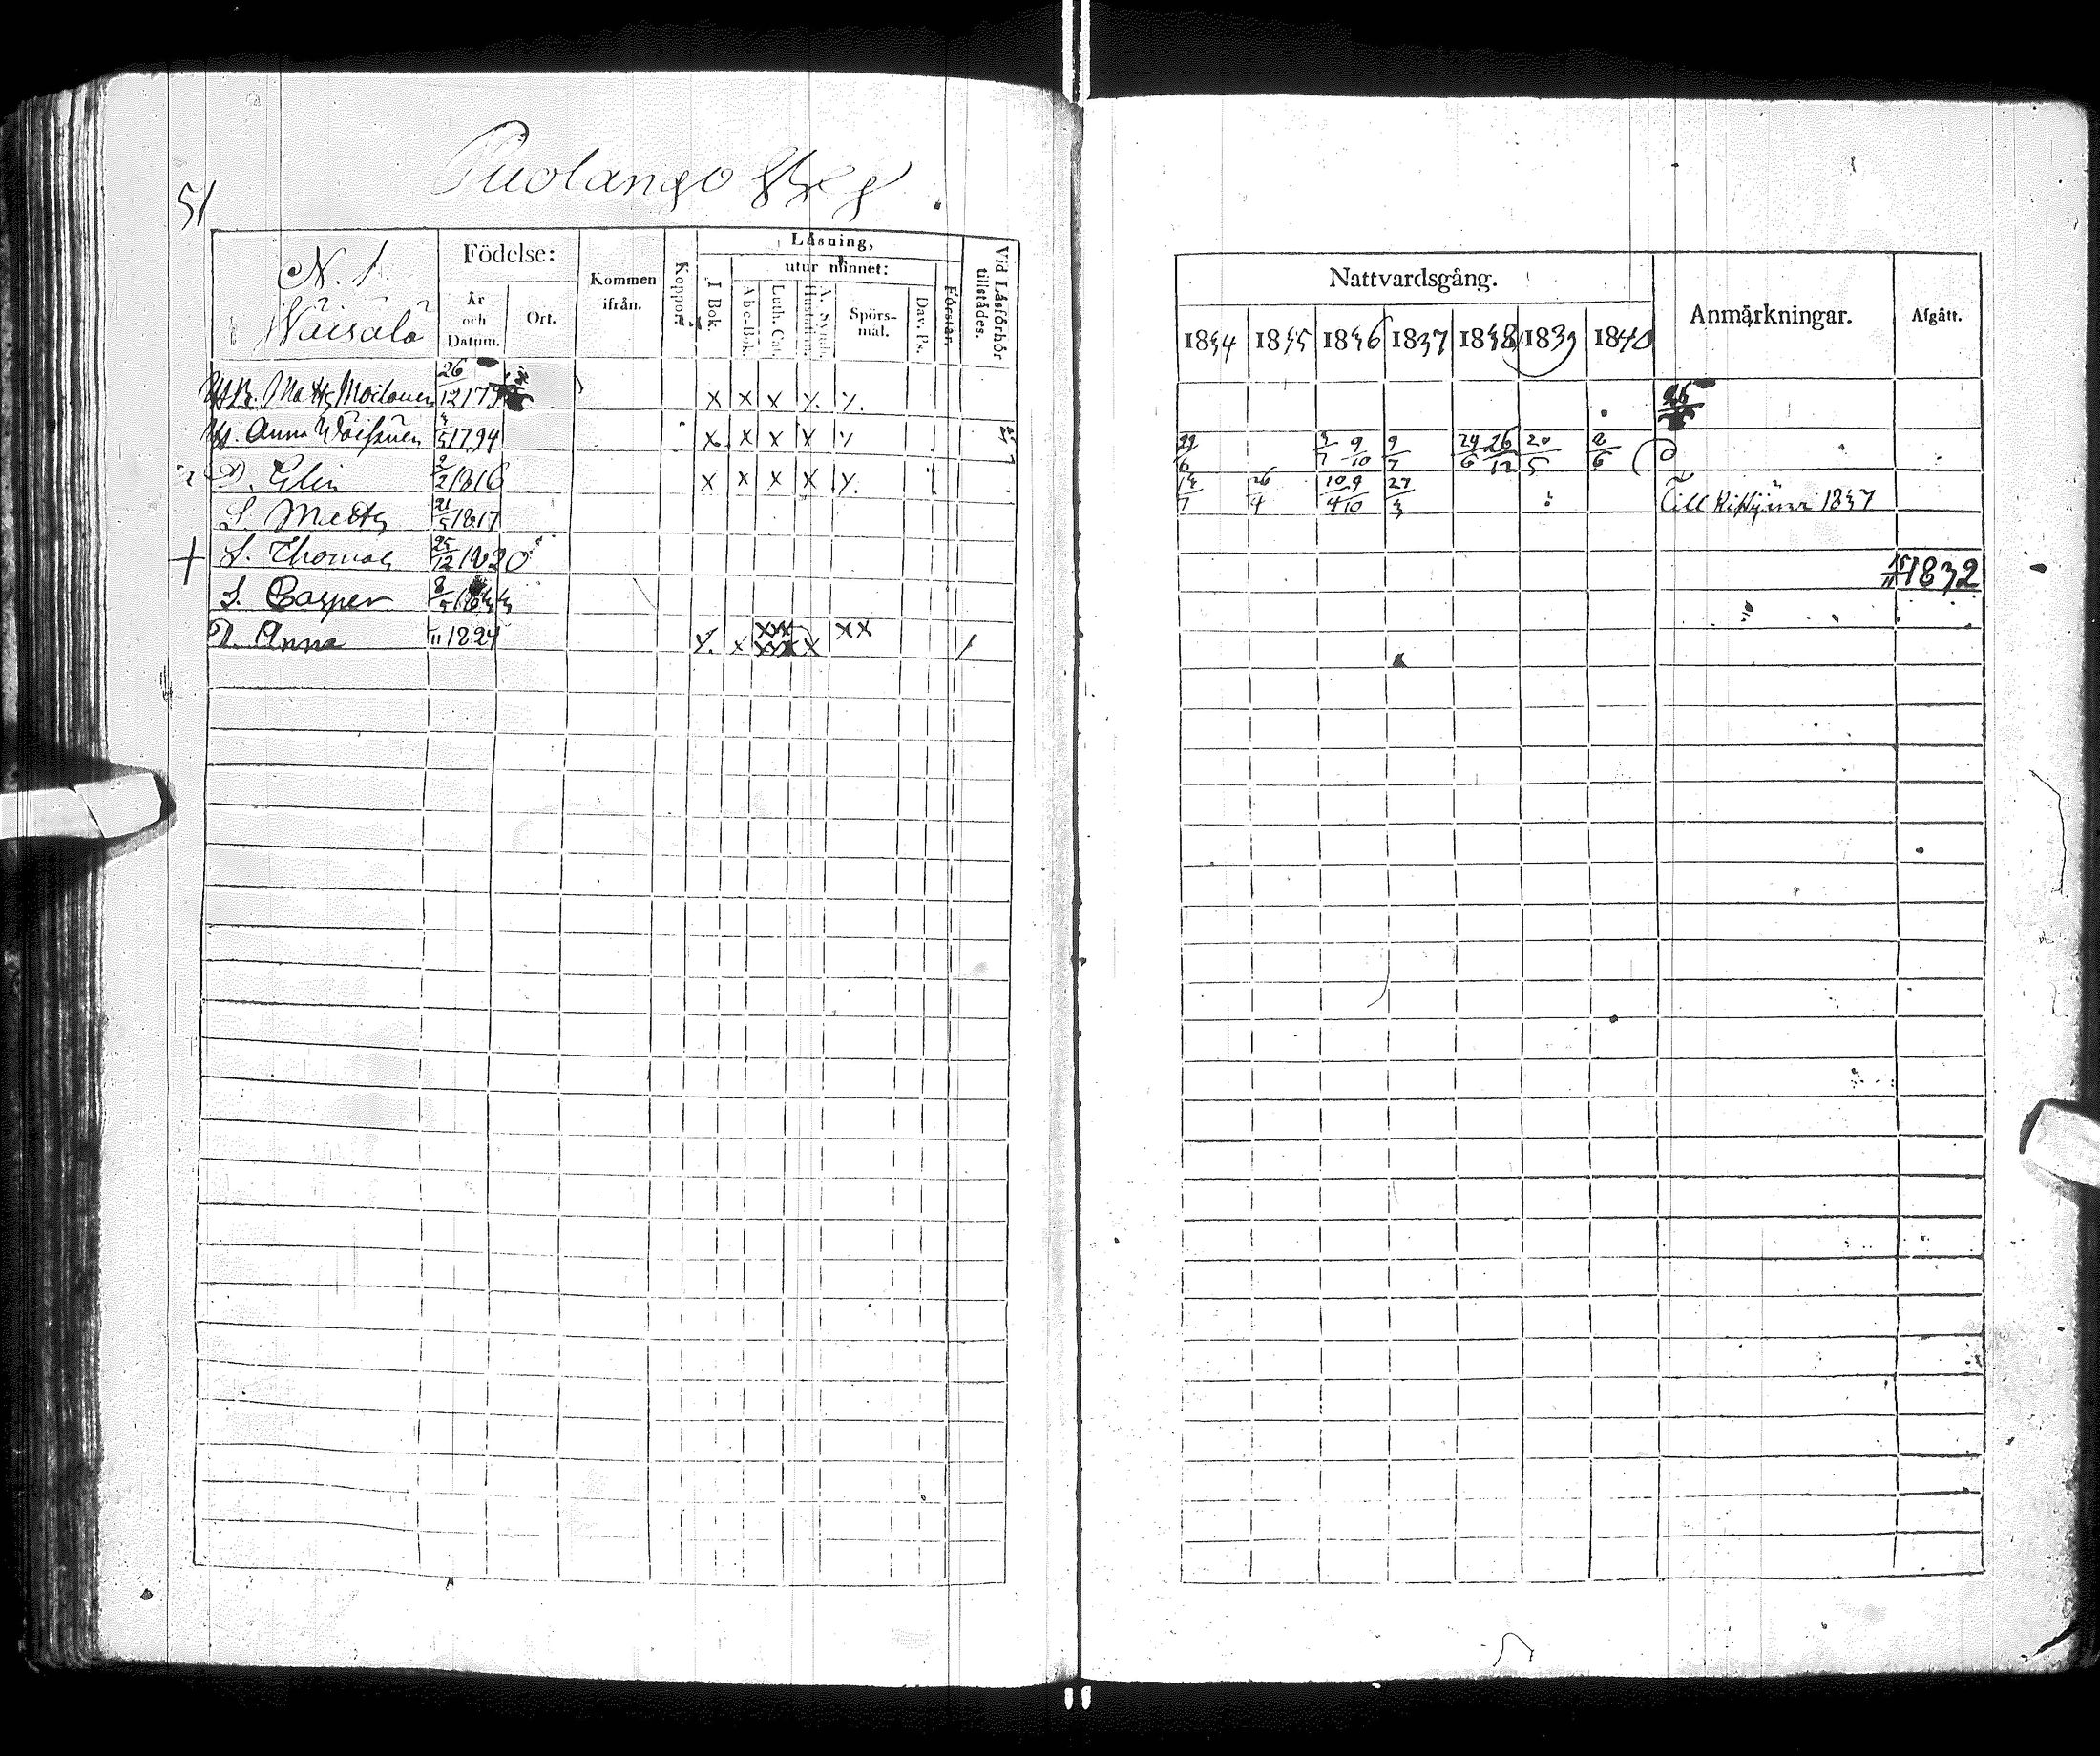 51
Puolango
N. 1.
Wäisälä
Födelse:
År och Datum.
Ort.
Kommen ifrån.
Koppor.
Låsning,
I Bok.
utur minnet:
Abc-Bok.
Luth. Cat.
A. Symb. Hustaflan.
Spörs-mål.
Dav. Ps.
Förstår.
Vid Låsförhör tillstådes.
Matts Moilanen 26/12 179 x x x y. y.
Anna Wäisänen 1794 x x x x y
D. Elin 2/2 1816 x x x x y.
S. Matts 21/5 1817
+ S. Thomas 25/12 1820
S. Casper 8/5
D. Anna 11 1824 y. x xxx xxx x xx /
Nattvardsgång.
1834 1835 1836 1837 1838 1839 1840
Anmärkningar.
Afgått.
9/10 9/7 24/6 26/12 20/5 2/6
26/4 10/4 9/10 27/3 Till 1837
15/11 1832